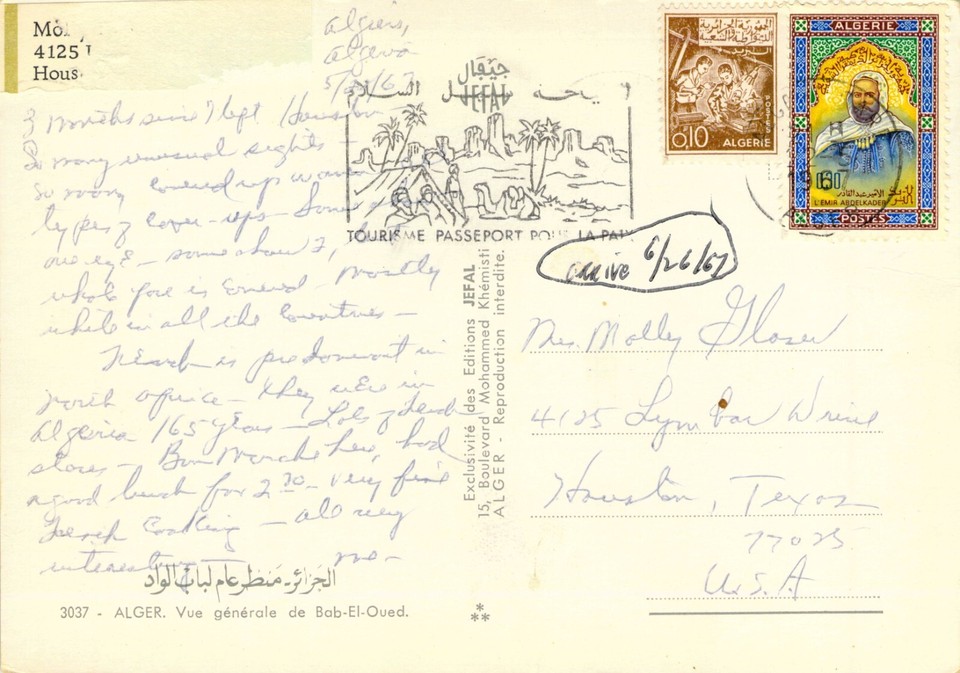 Mol
4125
Hous
Algiers,
Algeria
5/ /67
3 months since I left Houston
So many unusual sights -
So many covered up women
types of cover-ups - Some
one eye - some show 2, mostly
whole face is covered
while in all the countries -
French is predominant in
North Africa - they were in
Algeria 165 years - Lots of French
stores - Bon Marche here, had
a good lunch for 2.70 - very fine
French Cooking - all very
interesting me -
الجزائر - منظر عام لباب الواد
3037 - ALGER. Vue générale de Bab-El-Oued.
جيفال
JEFAL
السياحة
TOURISME PASSEPORT POUR LA PAIX
Exclusivité des Editions JEFAL
15, Boulevard Mohammed Khémisti
ALGER - Reproduction interdite.
الجمهورية الجزائرية
الديمقراطية الشعبية
البريد
0,10
ALGERIE
POSTES
ALGERIE
0,30
الامير عبد القادر
البريد
L'EMIR ABDELKADER
POSTES
1967
arrive 6/26/67
Mrs. Molly Glaser
4125 Lymbar Drive
Houston, Texas
77025
U.S.A